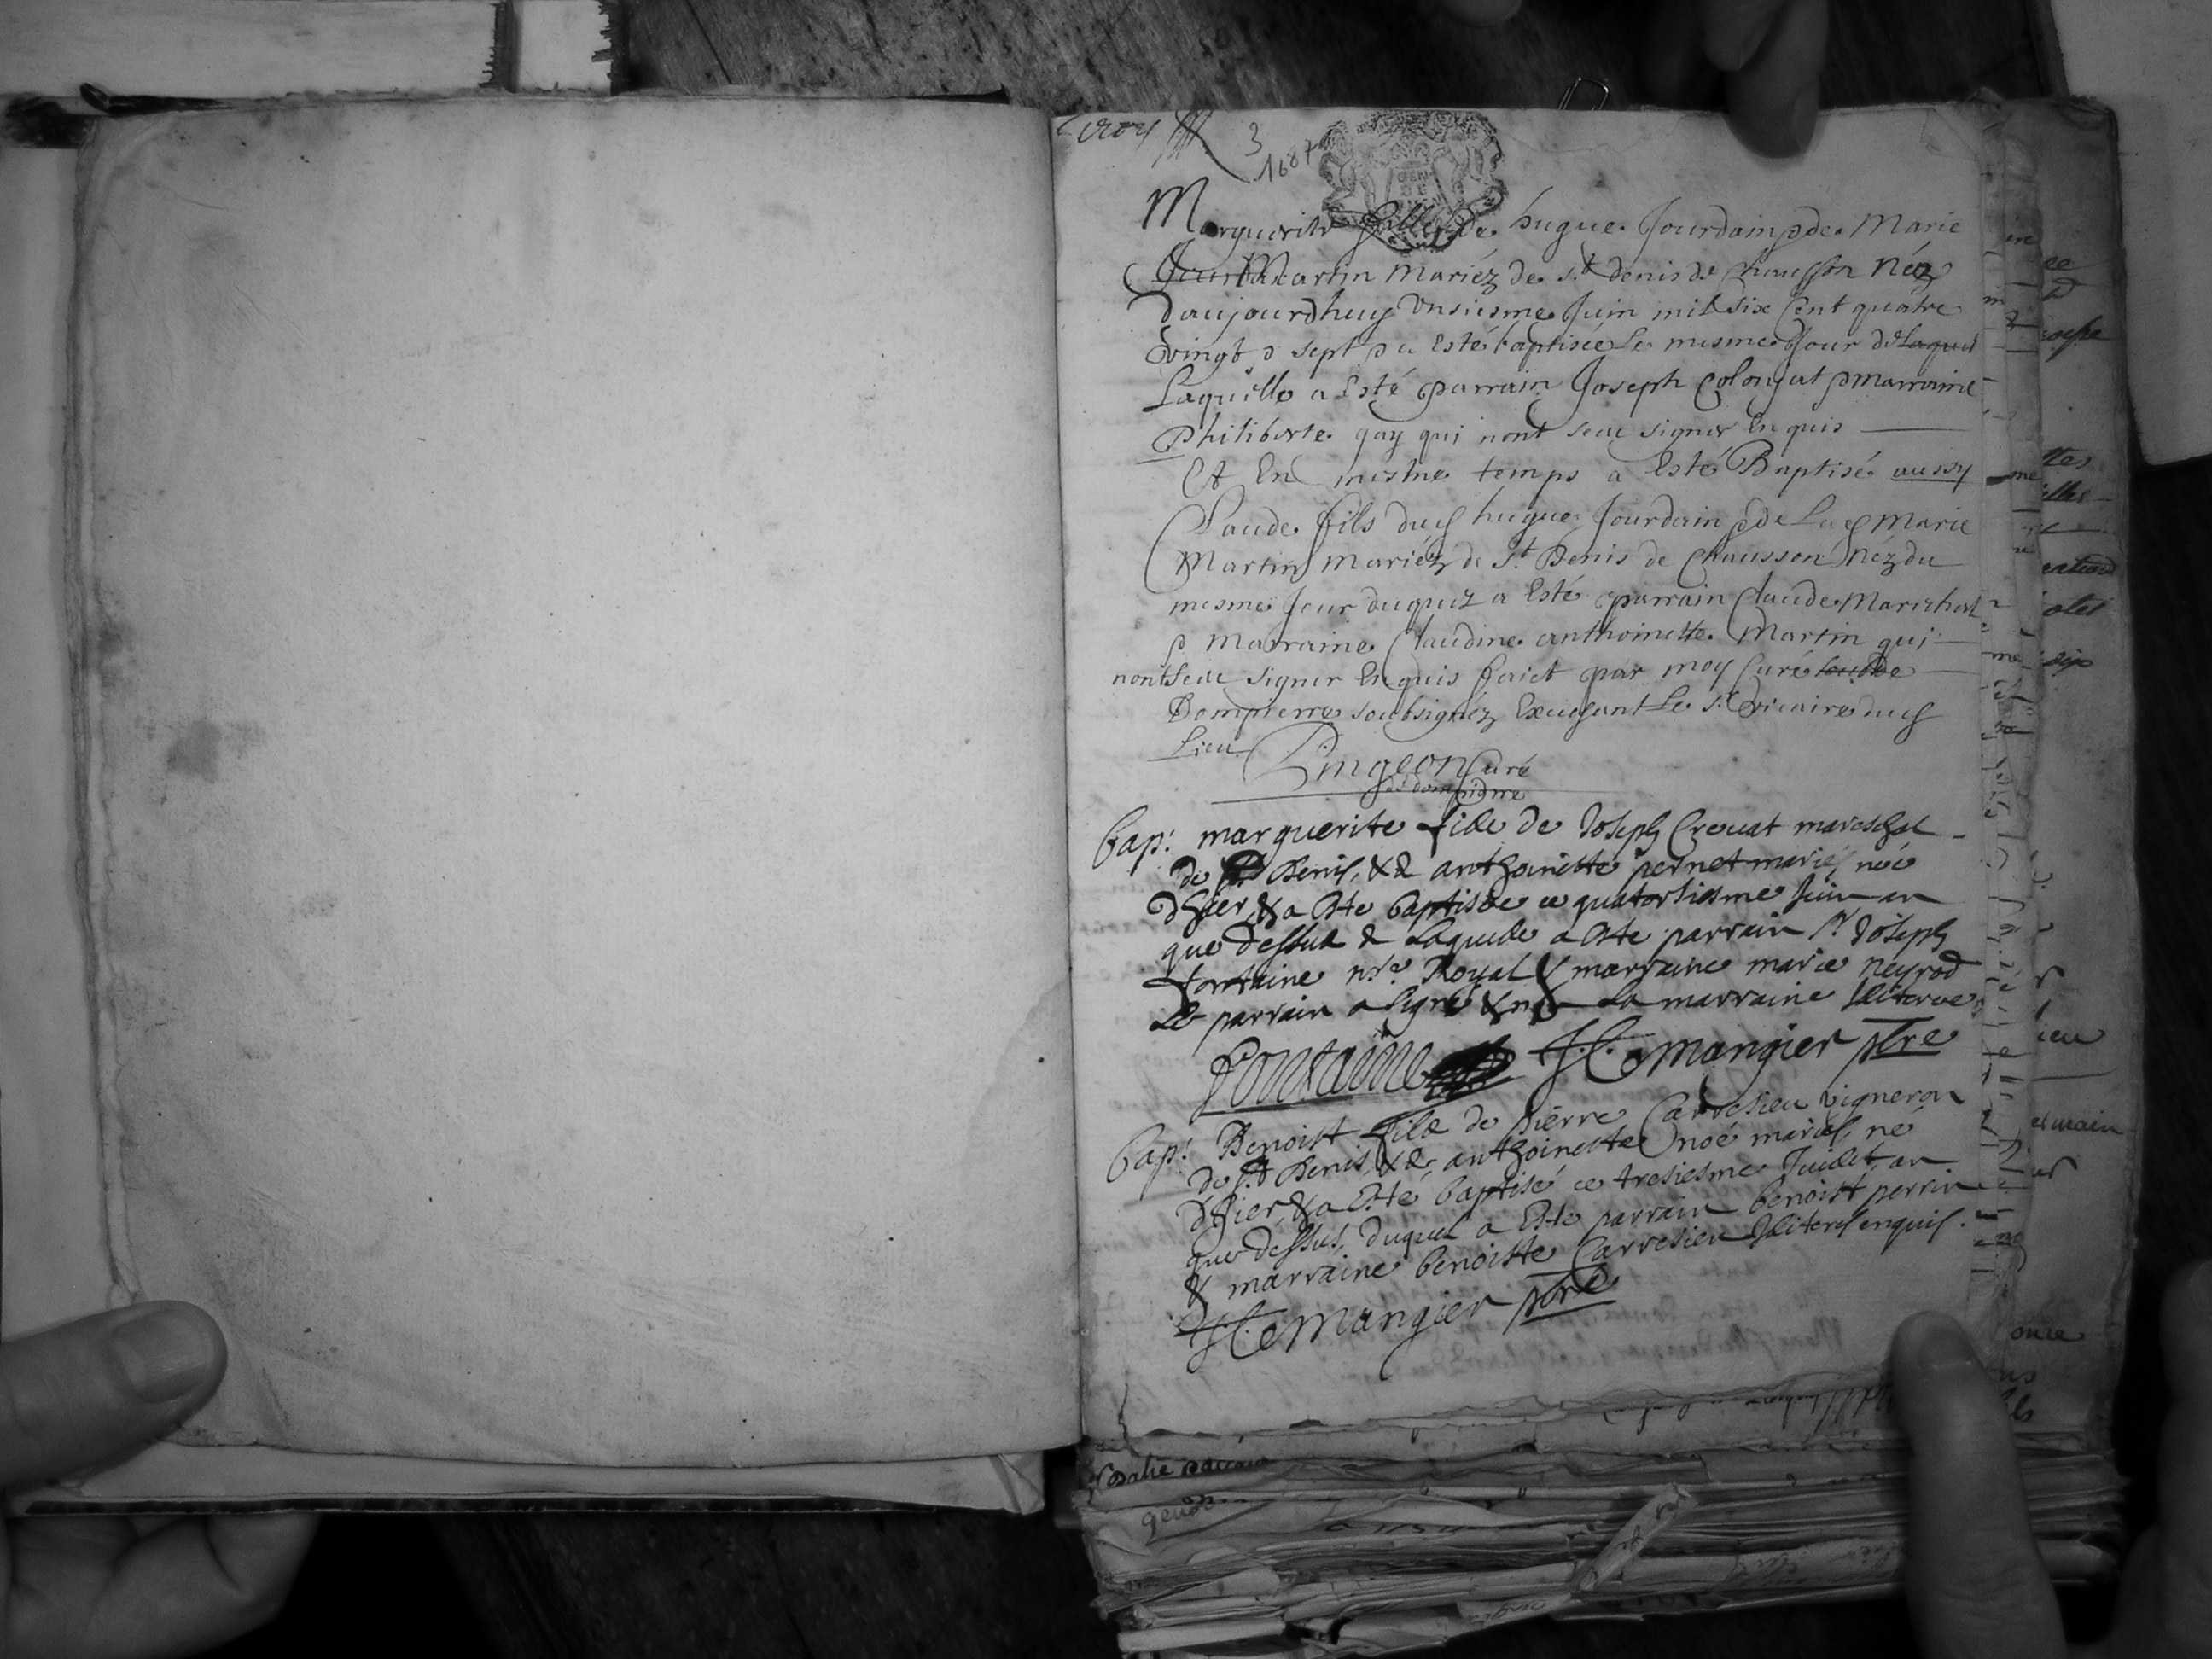 Leroy
3
1687
Marguerite fille de hugue Jourdain & de Marie
Martin Mariéz de st denis de Chausson Néz
daujourdhuy unsiesme Juin mil six Cent quatre
vingt & sept & a Esté baptisée Le mesme Jour de Laquel
Laquelle a Esté parrain Joseph Colonjat & marraine
Philiberte gay qui nont sceu signer Enquis
Et En mesme temps a Esté Baptisé aussy
Claude fils dud hugue Jourdain & de Lad Marie
Martin Mariéz de St Denis de Chausson Néz du
mesme Jour duquel a Esté parrain Claude Marechal
& Marraine Claudine anthoinette Martin qui
nont sceu signer Enquis faict par moy Curé
Dompierre soubsignéz Excusant Le sr vicaire dud
Lieu
Pingeon Curé
de dompierre
Bap: marguerite fille de Joseph Crevat mareschal
de st Denis, & d' anthoinette pernet mariés, née
d'hier, & a esté baptisée ce quatorsiesme Juin an
que dessus & Laquelle a esté parrain Sr Joseph
fontaine nre Royal & marraine marie neyrod
Le parrain a signé & non La marraine Illiterée
Fontaine J. C. Mangier ptre
Bap: Benoist fils de pierre Carresieu vigneron
de st Denis, & d' anthoinette noé mariés, né
d'hier, & a esté baptisé ce tresiesme Juillet, an
que dessus, duquel a esté parrain benoist perrin
& marraine benoiste Carresieu Illiterés enquis.
J. C. Mangier ptre